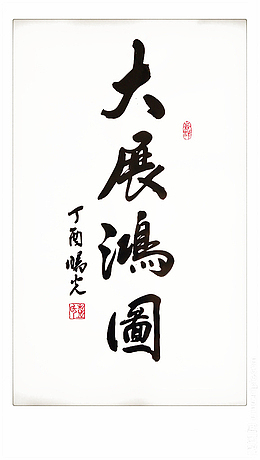 大展鴻圖
丁酉鵬光